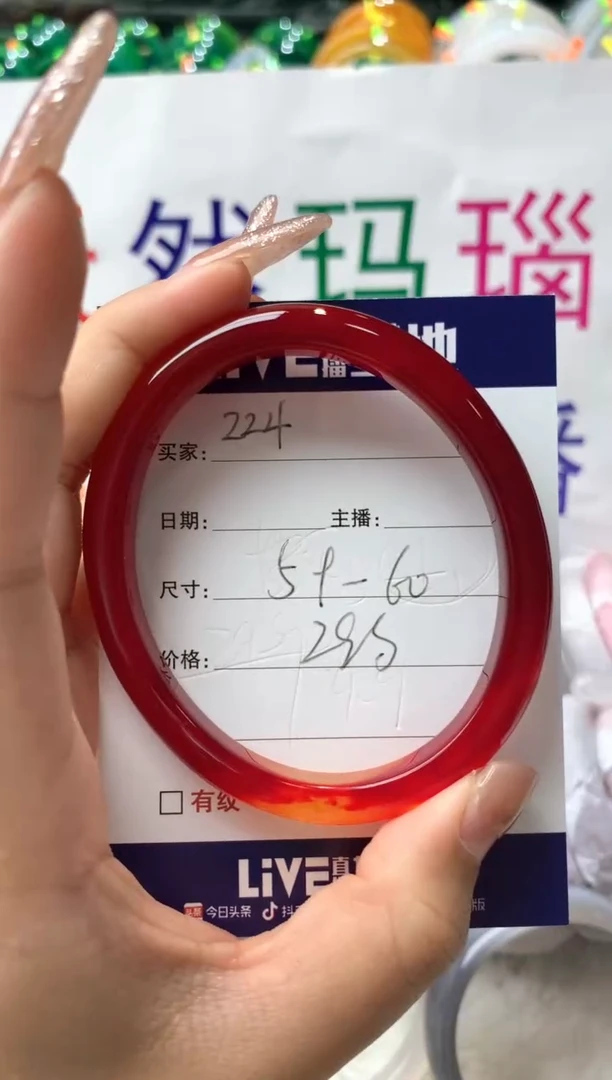 然玛瑙
LiVE
买家: 224
日期: 主播:
尺寸: 59-60
价格: 295
有纹
LiVE真
今日头条 抖